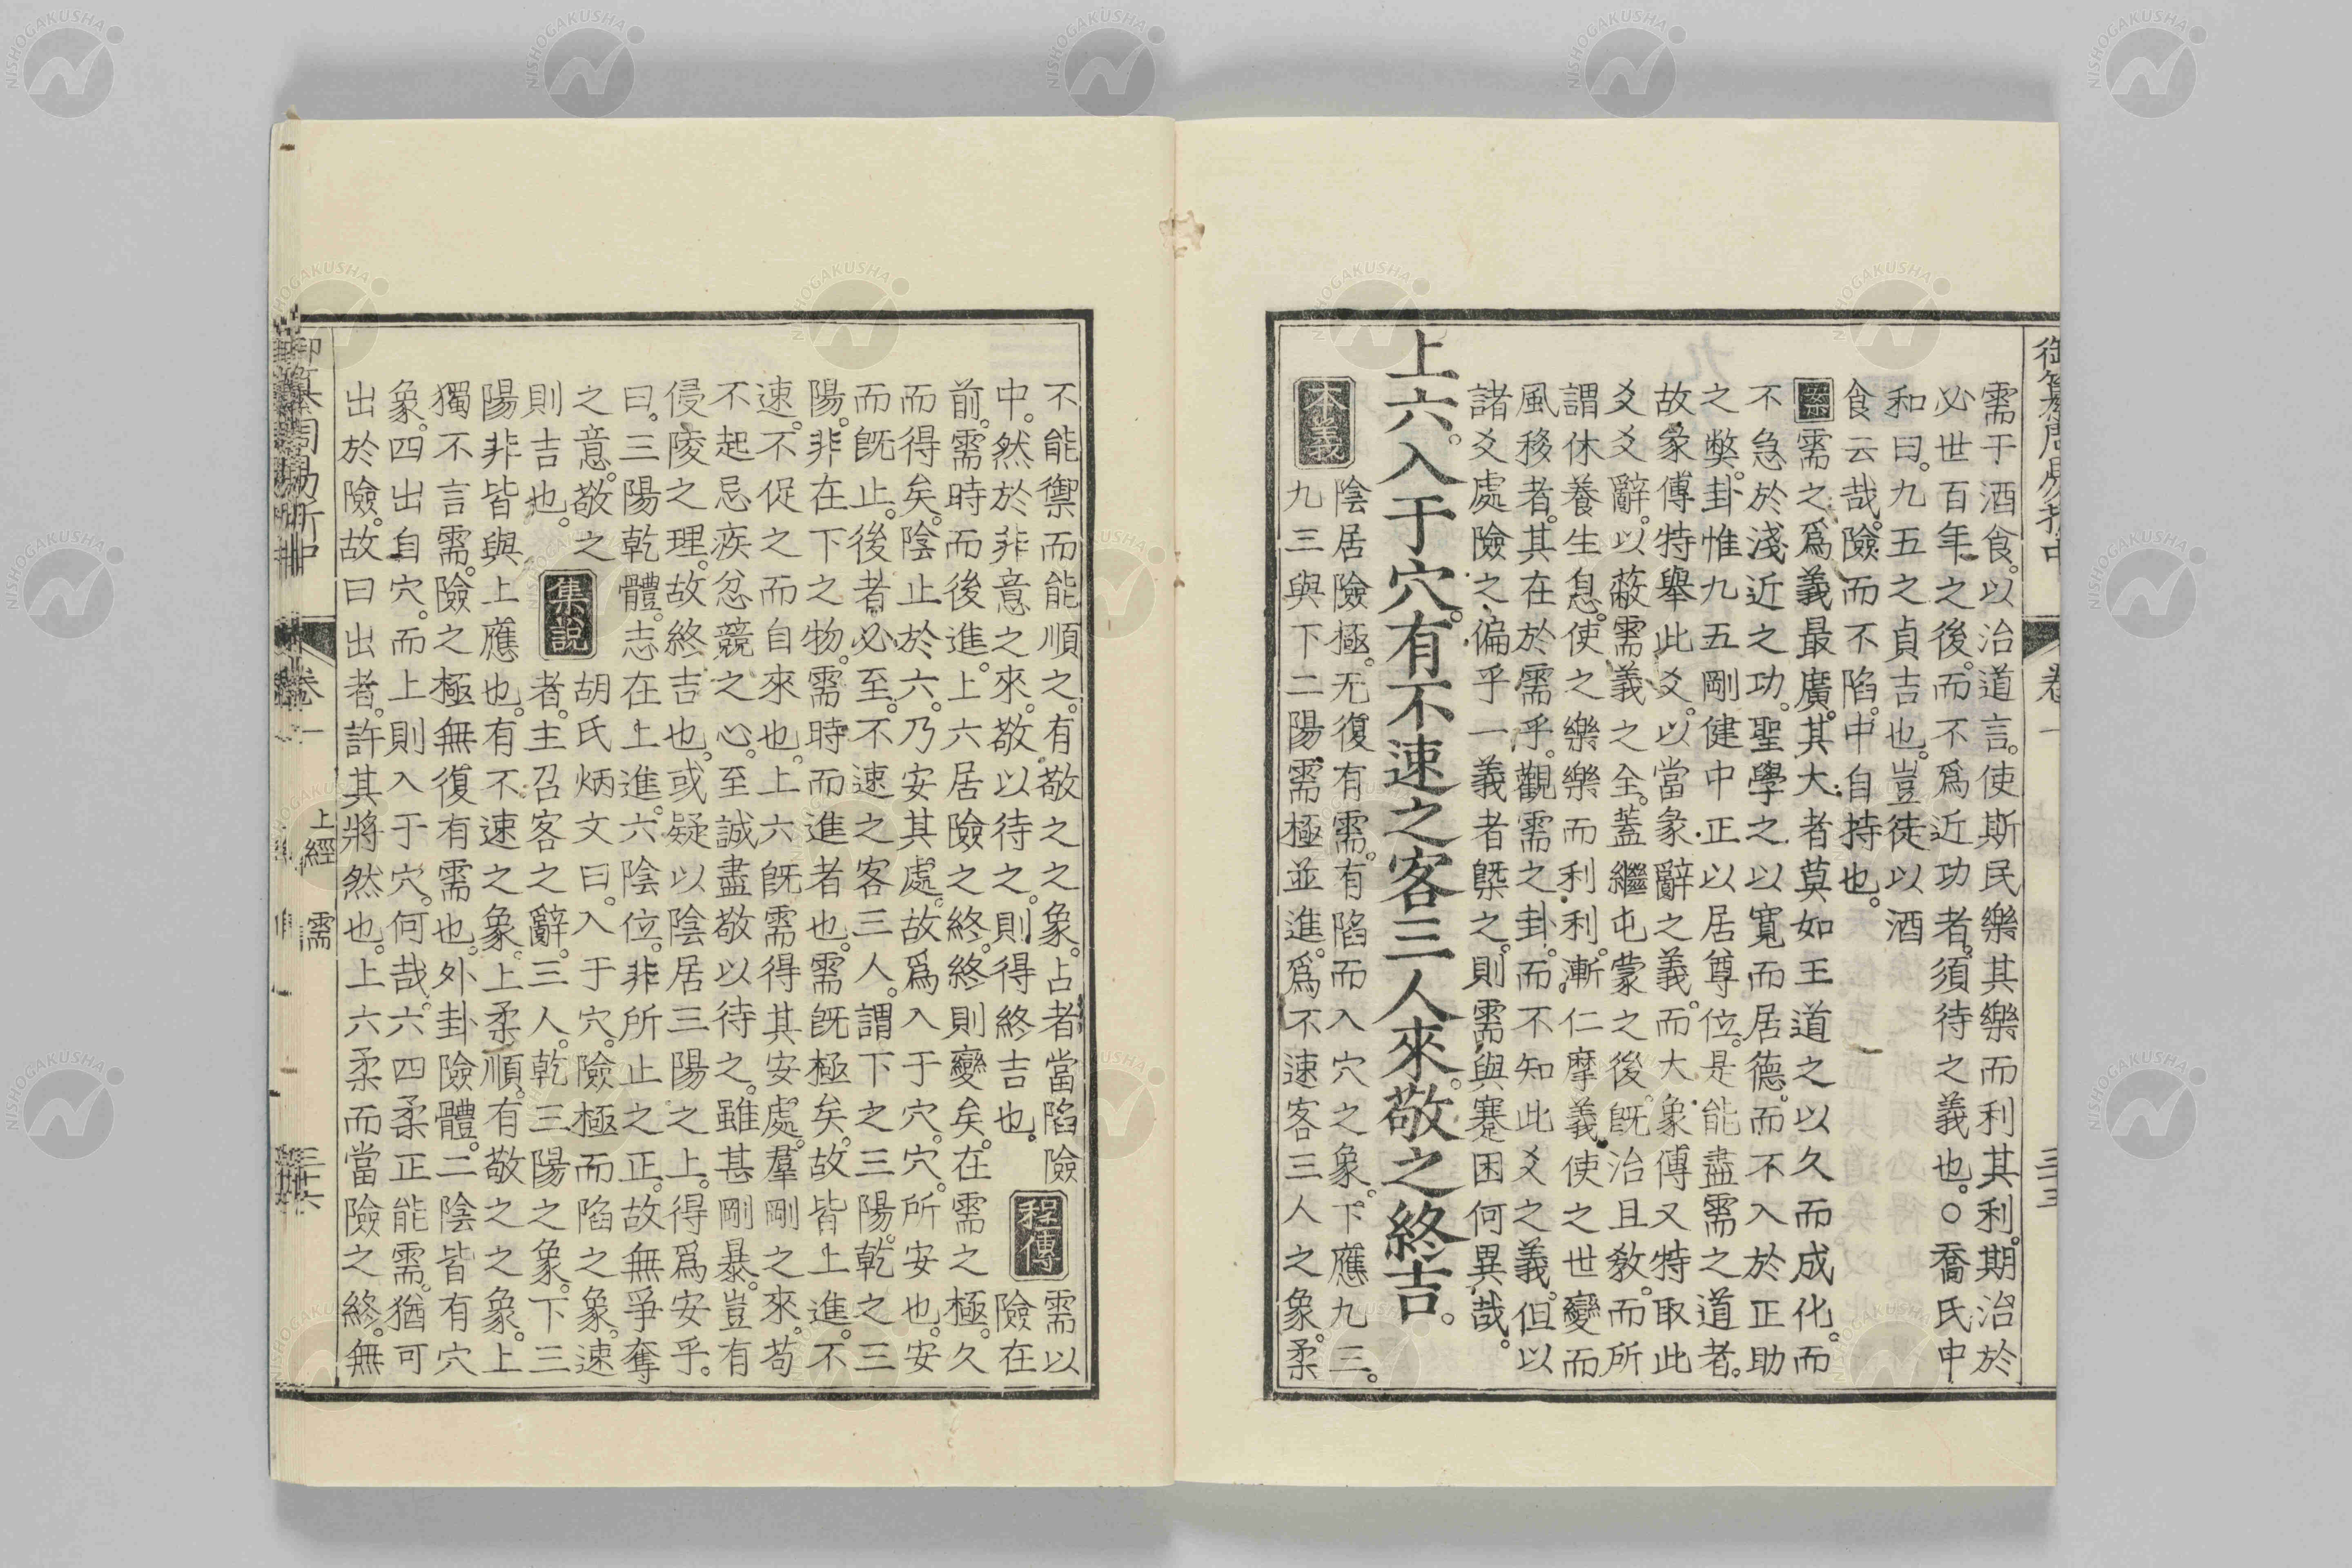 御纂周易折中
卷一
三十三
需于酒食。以治道言。使斯民樂其樂而利其利。期治於
必世百年之後。而不爲近功者。須待之義也。○喬氏中
和曰。九五之貞吉也。豈徒以酒
食云哉。險而不陷。中自持也。
案需之爲義最廣。其大者莫如王道之以久而成化。而
不急於淺近之功。聖學之以寬而居德。而不入於正助
之弊。卦惟九五剛健中正以居尊位。是能盡需之道者。
故彖傳特舉此爻。以當彖辭之義。而大象傳又特取此
爻爻辭。以蔽需義之全。蓋繼屯蒙之後。旣治且敎。而所
謂休養生息。使之樂樂而利利。漸仁摩義。使之世變而
風移者。其在於需乎。觀需之卦。而不知此爻之義。但以
諸爻處險之偏乎一義者槩之。則需與蹇困何異哉。
上六。入于穴。有不速之客三人來。敬之終吉。
本義
陰居險極。无復有需。有陷而入穴之象。下應九三。
九三與下二陽需極並進。爲不速客三人之象。柔
不能禦而能順之。有敬之之象。占者當陷險
中。然於非意之來。敬以待之。則得終吉也。
程傳
需以
險在
前。需時而後進。上六居險之終。終則變矣。在需之極。久
而得矣。陰止於六。乃安其處。故爲入于穴。穴。所安也。安
而旣止。後者必至。不速之客三人。謂下之三陽。乾之三
陽。非在下之物。需時而進者也。需旣極矣。故皆上進。不
速。不促之而自來也。上六旣需得其安處。羣剛之來。苟
不起忌疾忿競之心。至誠盡敬以待之。雖甚剛暴。豈有
侵陵之理。故終吉也。或疑以陰居三陽之上。得爲安乎。
曰。三陽乾體。志在上進。六陰位。非所止之正。故無爭奪
之意。敬之
則吉也。
集說
胡氏炳文曰。入于穴。險極而陷之象。速
者。主召客之辭。三人。乾三陽之象。下三
陽非皆與上應也。有不速之象。上柔順。有敬之之象。上
獨不言需。險之極無復有需也。外卦險體。二陰皆有穴
象。四出自穴。而上則入于穴。何哉。六四柔正能需。猶可
出於險。故曰出者。許其將然也。上六柔而當險之終。無
御纂周易折中
卷一
上經
需